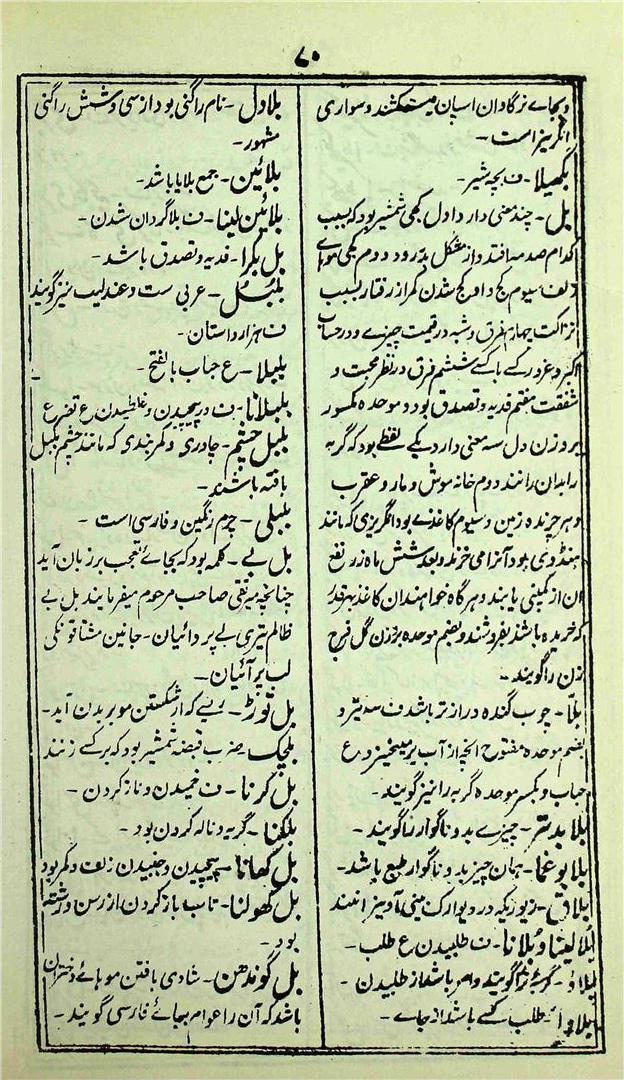 ۷۰
وبجاے نرگاوان اسپان میکشند وسواری
انگریز است -
بگھیلا - ف بچہ شیر -
بل - چند معنی دارد اول کجی شمشیر بود کہ بسبب
کدام صدمہ افتد و از مشکل بدر رود دوم کجی موے
زلف سیوم کج و اکج شدن کمر از رفتار بسبب
نزاکت چہارم فرق و شبہ در قیمت چیزے و در حساب
پنجم
شفقت ہفتم فدیہ و تصدق بود و موحدہ مکسور
بر وزن دل سہ معنی دارد یکے لفظے بود کہ گربہ
را بدان رانند دوم خانہ موش و مار و عقرب
و ہر چرندہ زمین و سیوم کاغذے بود انگریزی کہ مانند
ہنڈوی بود آنرا می خرند و بعد شش ماہ زر نفع
آن از کمپنی یابند و ہرگاہ خواہند آن کاغذ بہر قدر
کہ خریدہ باشند بفروشند و بضم موحدہ بر وزن گل فرج
زن را گویند -
بلّا - چوب گندہ دراز تر باشد ف
بضم موحدہ مفتوح آنچہ از آب برمیخیزد ع
حباب و بکسر موحدہ گربہ را نیز گویند -
بلا بدتر - چیزے بد و ناگوار را گویند -
بلا بوغما - ہمان چیز بد و ناگوار طبع باشد -
بلاق - زیوریکہ در دیوارک بینی آویزانند
بلا لینا و بلانا - ف طلبیدن ع طلب -
بلاؤ - گربہ نر را گویند و امر باشد از طلبیدن -
بلاوا - طلب کسے باشد از جاے -
بلاول - نام راگنی بود از سی و شش راگنی
مشہور -
بلائین - جمع بلا باشد -
بلائین لینا - ف بلا گردان شدن -
بل بکرا - فدیہ و تصدق باشد -
بلبل - عربی ست و عندلیب نیز گویند
ف ہزار داستان -
بلبلا - ع حباب بالفتح -
بلبلانا - ف در پیچیدن و غلطیدن ع تضرع
بلبل چشم - چادری و کمربندی کہ مانند چشم بلبل
بافتہ باشند -
بلبلی - چرم رنگین و فارسی است -
بل بے - کلمہ بود کہ بجاے تعجب بر زبان آید
چنانچہ میر تقی صاحب مرحوم میفرمایند بل بے
ظالم تیری بے پردائیان - جانین مشتاقونکی
لب پر آئیان -
بل توڑ - ریے کہ از شکستن مو بر بدن آید -
بلچک - ضرب قبضہ شمشیر بود کہ بر کسے زنند
بل کرنا - ف خمیدن و ناز کردن -
بلکنا - گریہ و نالہ کردن بود -
بل کھانا - پیچیدن و جنبیدن زلف و کمر بود
بل کھولنا - تاب باز کردن از رسن و رشتہ
بود -
بل گوندھن - شادی بافتن موہاے دختران
باشد کہ آن را عوام بجاے فارسی گویند -